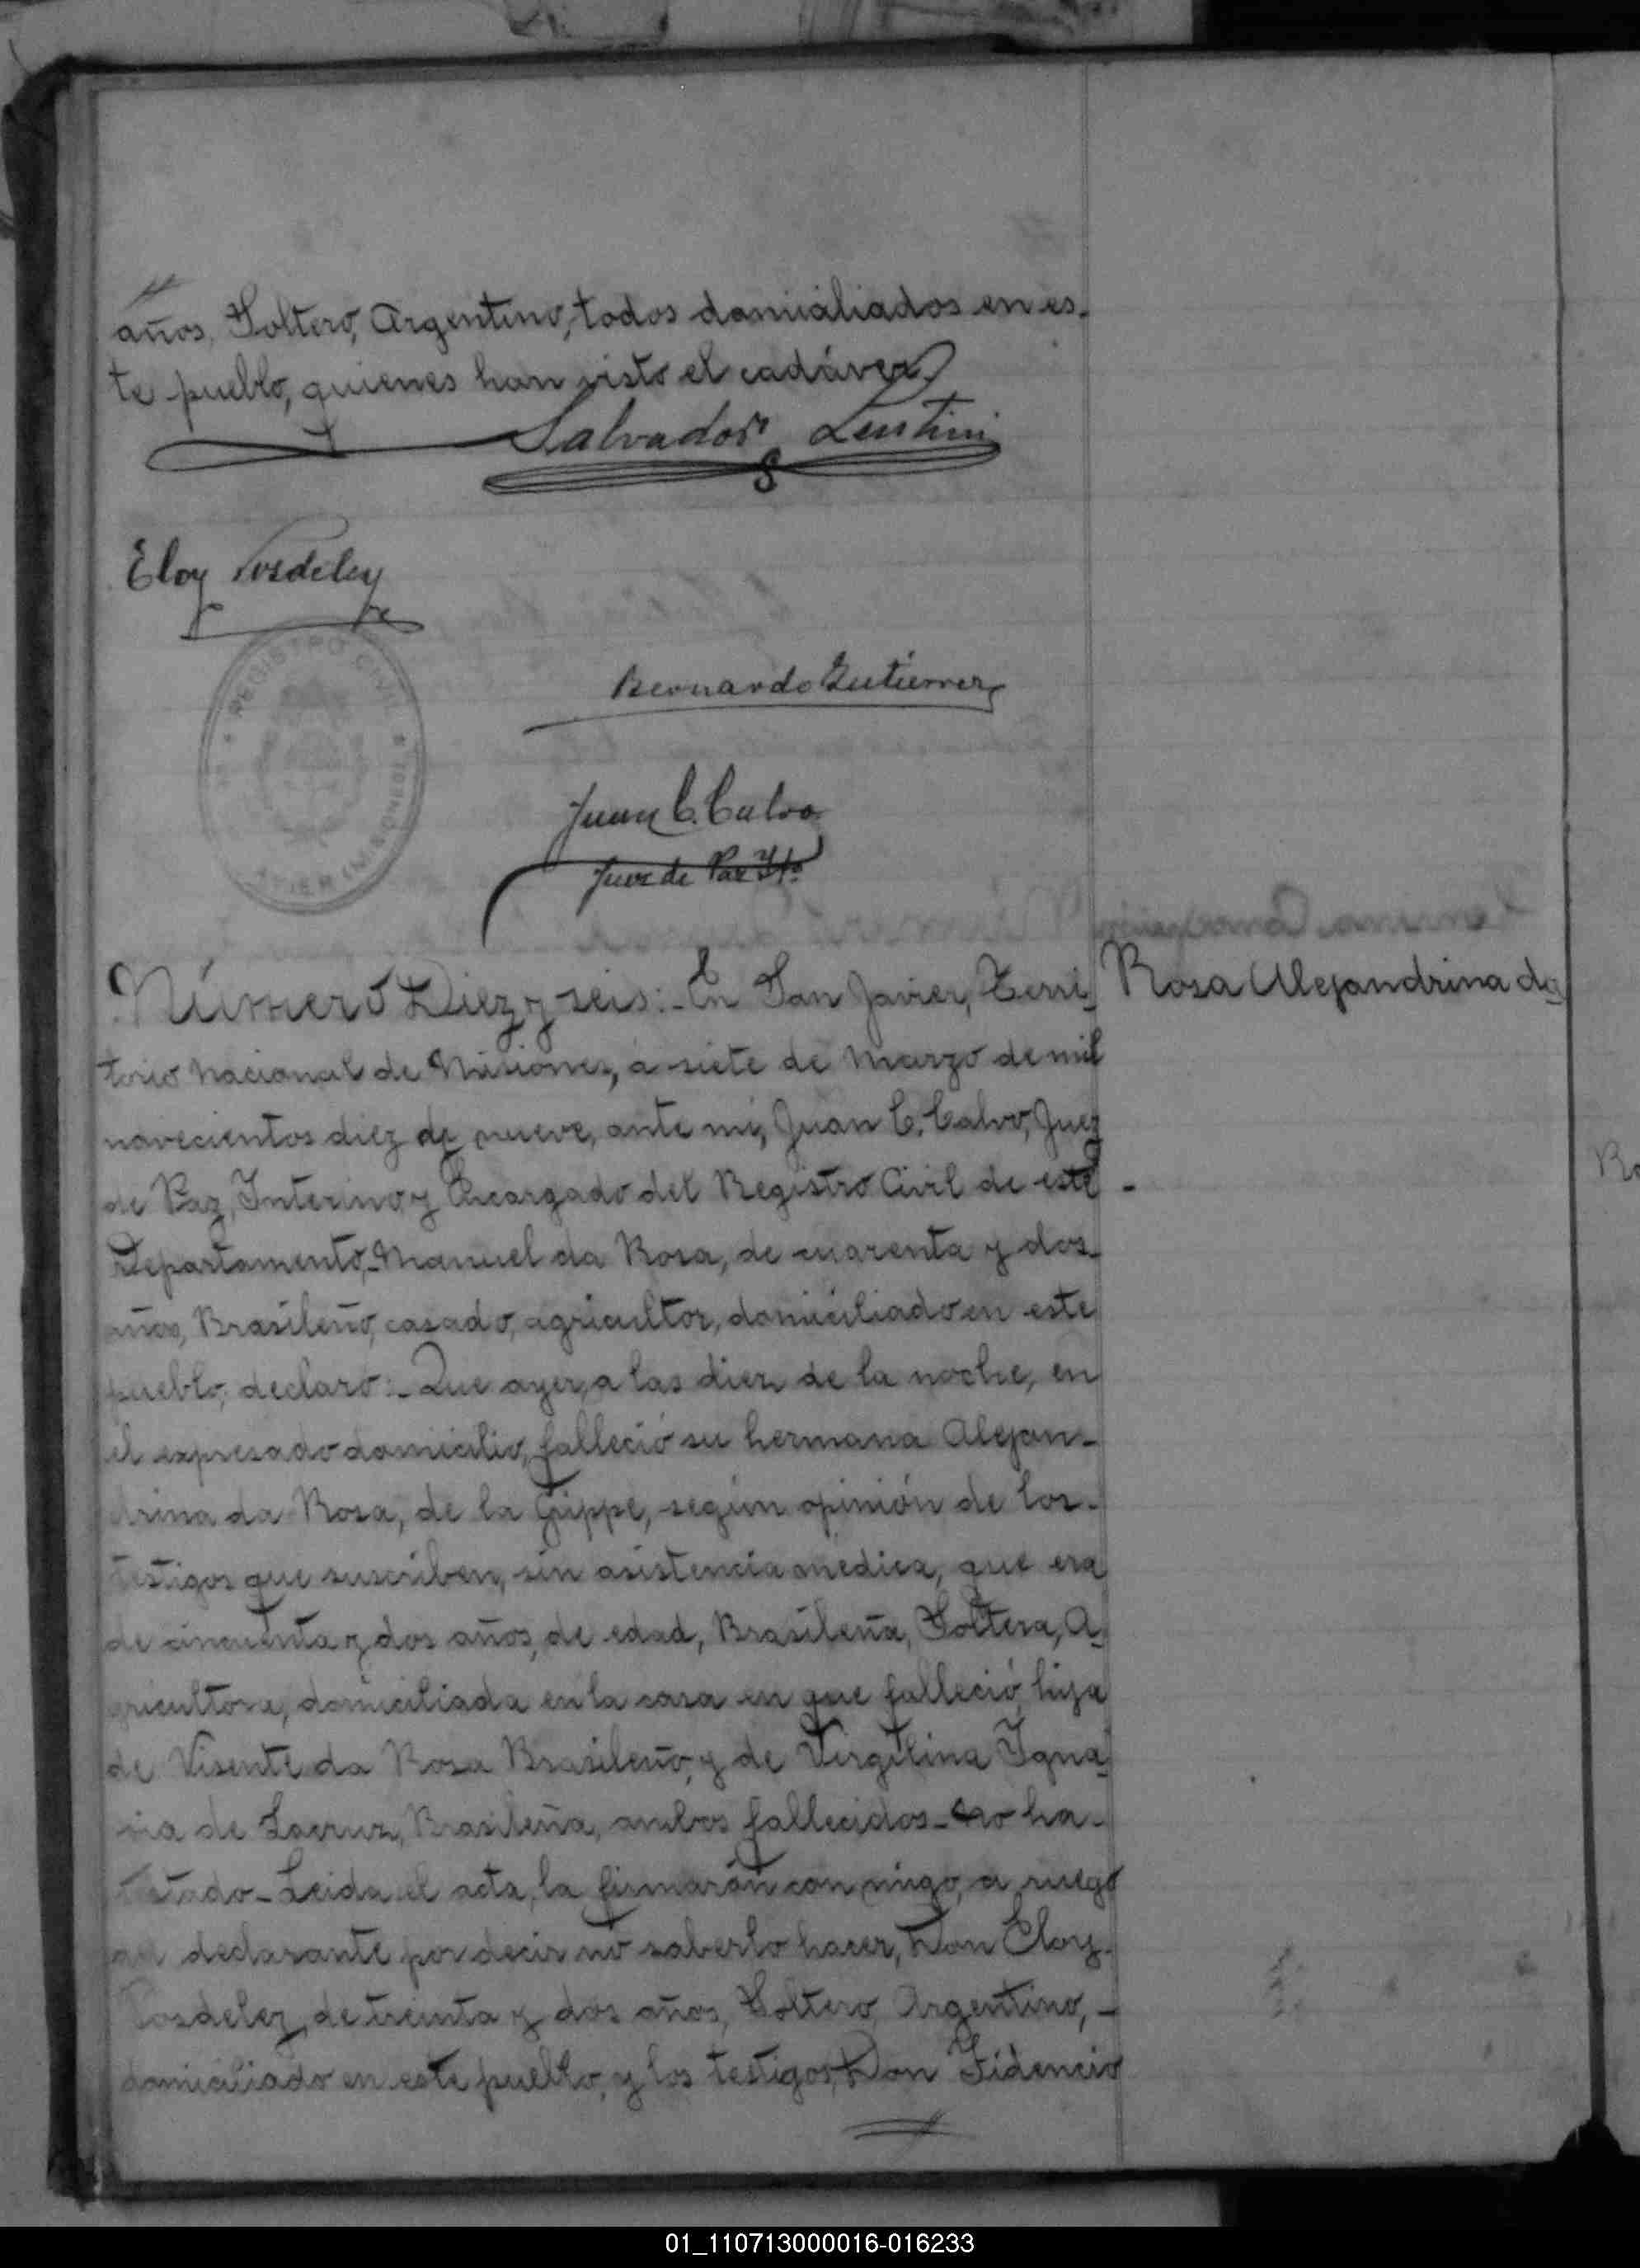 años, Soltero, Argentino, todos domiciliados en es-
te pueblo, quienes han visto el cadáver.
Salvador Lentini
Eloy Posdeley
Bernardo Gutierrez
REGISTRO CIVIL
JAVIER (MISIONES)
Juan C. Calvo
Juez de Paz Ito
Número Diez y seis:- En San Javier, Terri-
Rosa Alejandrina da
torio Nacional de Misiones, a siete de Marzo de mil
novecientos diez de nueve, ante mi, Juan C. Calvo, Juez
de Paz, Interino y Encargado del Registro Civil de este -
Departamento,- Manuel da Rosa, de cuarenta y dos-
años, Brasileño, casado, agricultor, domiciliado en este
pueblo, declaro:- Que ayer, a las diez de la noche, en
el expresado domicilio, falleció su hermana Alejan-
drina da Rosa, de la Grippe, según opinión de los-
testigos que suscriben, sin asistencia medica, que era
de cincuenta y dos años, de edad, Brasileña, Soltera, A-
gricultora, domiciliada en la casa en que falleció, hija
de Visente da Rosa Brasileño, y de Virgilina Igna-
cia de Lacruz, Brasileña, ambos fallecidos- no ha-
testado- Leida el acta, la firmarón con migo, a ruego
del declarante por decir nó saberlo hacer, Don Eloy-
Posdeley, de treinta y dos años, Soltero, Argentino,-
domiciliado en este pueblo, y los testigos, Don Fidencio
Ro
01_110713000016-016233